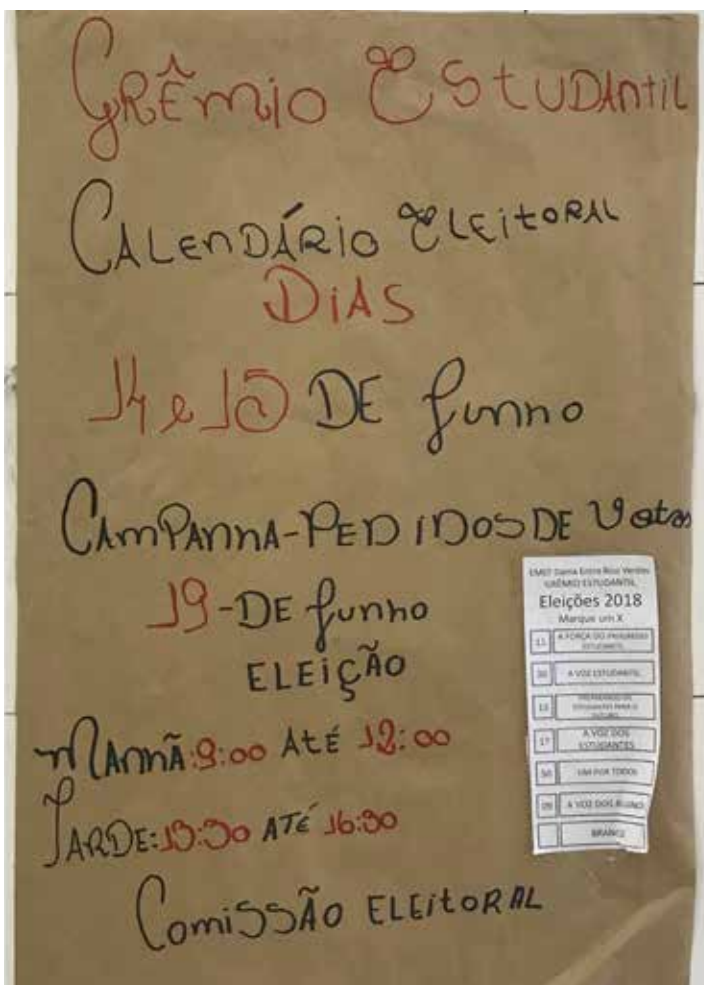 GRÊMIO ESTUDANTIL
CALENDÁRIO ELEITORAL
DIAS
14 e 15 DE Junho
CAMPANHA-PEDIDOS DE Votos
19-DE Junho
ELEIÇÃO
MANHÃ:9:00 ATÉ 12:00
TARDE:13:30 ATÉ 16:30
COMISSÃO ELEITORAL
EMEF Dama Entre Rios Verdes
GRÊMIO ESTUDANTIL
Eleições 2018
Marque um X
11 A FORÇA DO
ESTUDANTIL
A VOZ ESTUDANTIL
13
ESTUDANTES PARA O
FUTURO
17 A VOZ DOS
ESTUDANTES
50 UM POR TODOS
09 A VOZ DOS ALUNO
BRANCO